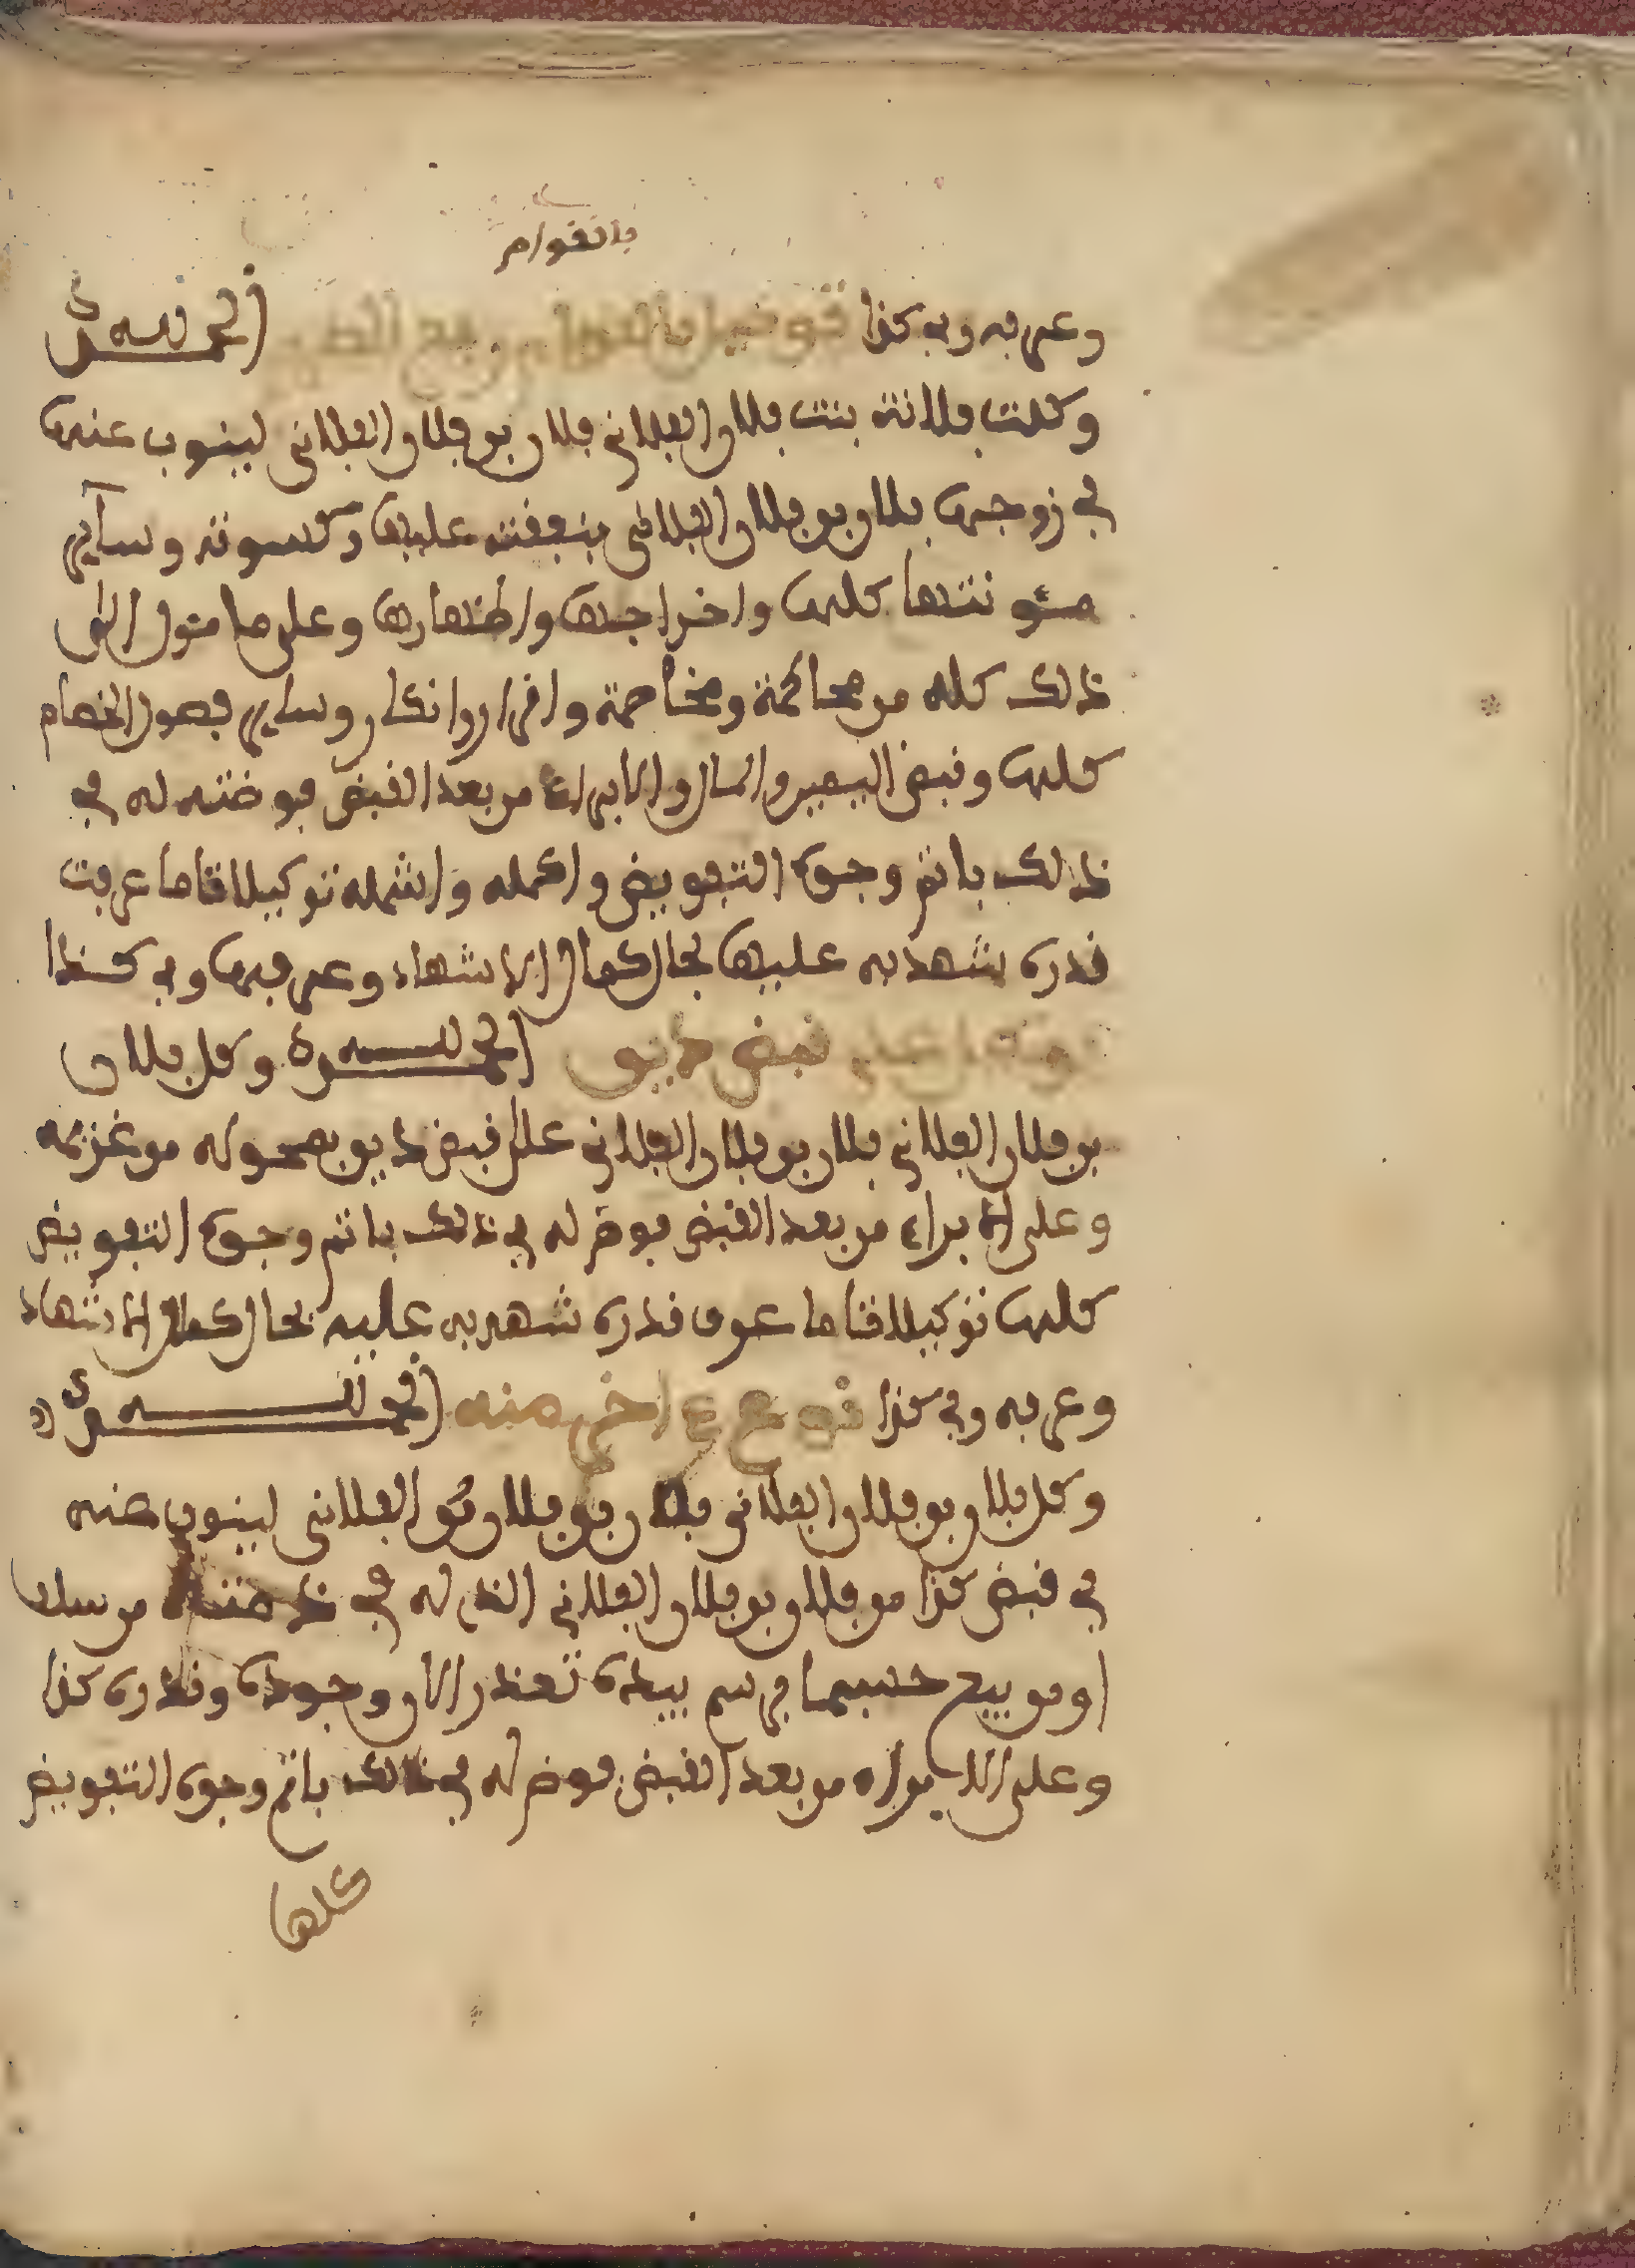 بالقوام
وعرفه وفي كذا توكيل بالقوام الحمد لله
وكلت فلانة بنت فلان الفلاني فلان بن فلان الفلاني لينوب عنها
في زوجها فلان بن فلان الفلاني بنفقته عليها وكسوته وساير
مئونتها كلها واخراجها واظهارها وعلى ما متول اليه
ذالك كله من محاكمة ومخاصمة واقرار وانكار وساير فصول الخصام
كلها وقبض اليمين والمال والابراء من بعد القبض فوضته له في
ذالك باتم وجوه التفويض واكمله واشمله توكيلا تاما عرفت
قدره شهد به عليها بحال كمال الاشهاد وعرفها وفي كذا
قبض ديون الحمد لله وكل فلان
بن فلان الفلاني فلان بن فلان الفلاني على قبض ديونه حوله من غريمه
وعلى الابراء من بعد القبض فوض له في ذالك باتم وجوه التفويض
كلها توكيلا تاما عرف قدره شهد به عليه بحال كمال الاشهاد
وعرفه وفي كذا نوع اخر منه الحمد لله
وكل فلان بن فلان الفلاني فلان بن فلان بن الفلاني لينوب عنه
في قبض كذا من فلان بن فلان الفلاني الذي له في ذمته من سلف
او من بيع حسبما برسم بيده تعذر الان وجوده وقدره كذا
وعلى الابراء من بعد القبض فوض له في ذالك باتم وجوه التفويض
كلها